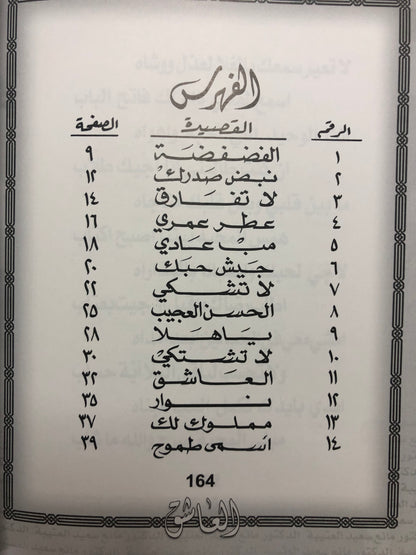 الفهرس
الرقم القصيدة الصفحة
١ الفضفضة ٩
٢ نبض صدرك ١٢
٣ لا تفارق ١٤
٤ عطر عمري ١٦
٥ مب عادي ١٨
٦ جيش حبك ٢٠
٧ لا تشكي ٢٢
٨ الحسن العجيب ٢٥
٩ ياهلا ٢٨
١٠ لا تشتكي ٣٠
١١ العاشق ٣٢
١٢ نوار ٣٥
١٣ مملوك لك ٣٧
١٤ اسمى طموح ٣٩
164
العاشق